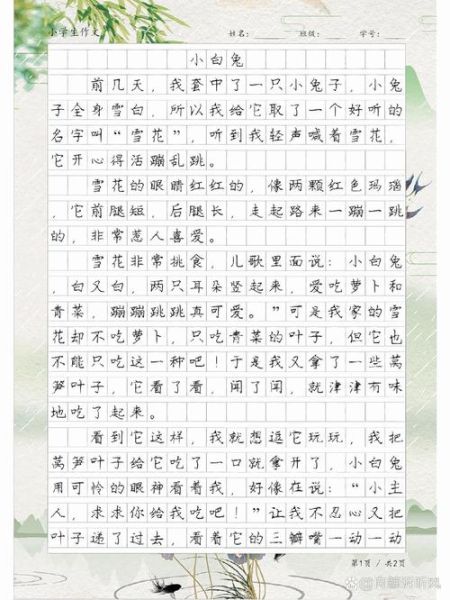 小学生作文 姓名: 班级: 学号:
小白兔
前几天，我套中了一只小兔子，小兔
子全身雪白，所以我给它取了一个好听的
名字叫“雪花”，听到我轻声喊着雪花，
它开心得活蹦乱跳。
雪花的眼睛红红的，像两颗红色玛瑙
，它前腿短，后腿长，走起路来一蹦一跳
的，非常惹人喜爱。
雪花非常挑食，儿歌里面说：小白兔
，白又白，两只耳朵竖起来，爱吃萝卜和
青菜，蹦蹦跳跳真可爱。”可是我家的雪
花却不吃萝卜，只吃青菜的叶子，但它也
不能只吃这一种吧！于是我又拿了一些莴
笋叶子，它看了看，闻了闻，就津津有味
地吃了起来。
看到它这样，我就想逗它玩玩，我把
莴笋叶子给它吃了一口就拿开了，小白兔
用可怜的眼神看着我，好像在说：“小主
人，求求你给我吃吧！”让我不忍心又把
叶子递了过去，看着它的三瓣嘴一动一动
第1页 / 共2页